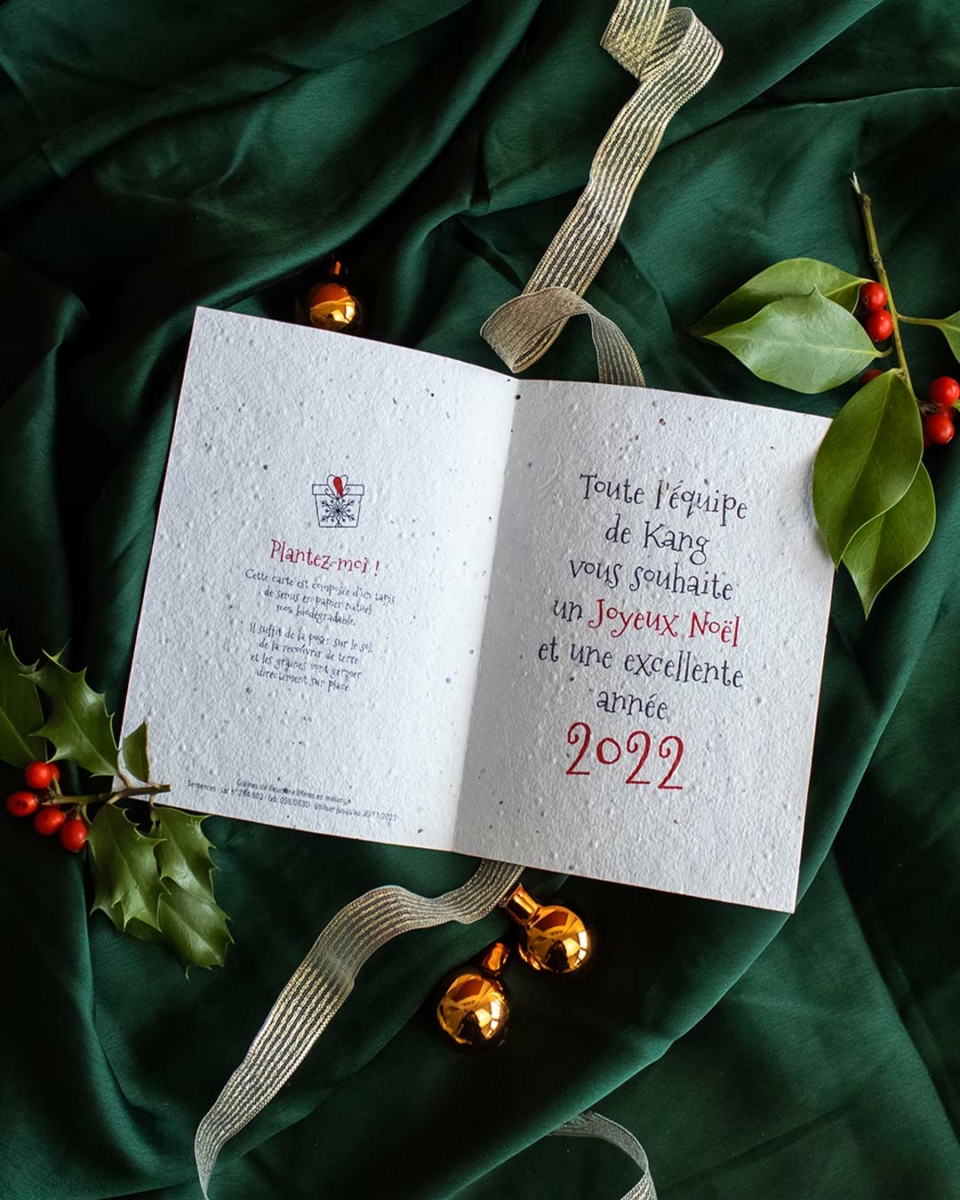 Plantez-moi !
Cette carte est composée d'un tapis
de semis en papier naturel
100% biodégradable.
Il suffit de la poser sur le sol,
de la recouvrir de terre
et les graines vont germer
directement sur place.
Graines de fleurs mellifères en mélange
Semences - Lot n° 284 803 - fab.
Toute l'équipe
de Kang
vous souhaite
un Joyeux Noël
et une excellente
année
2022